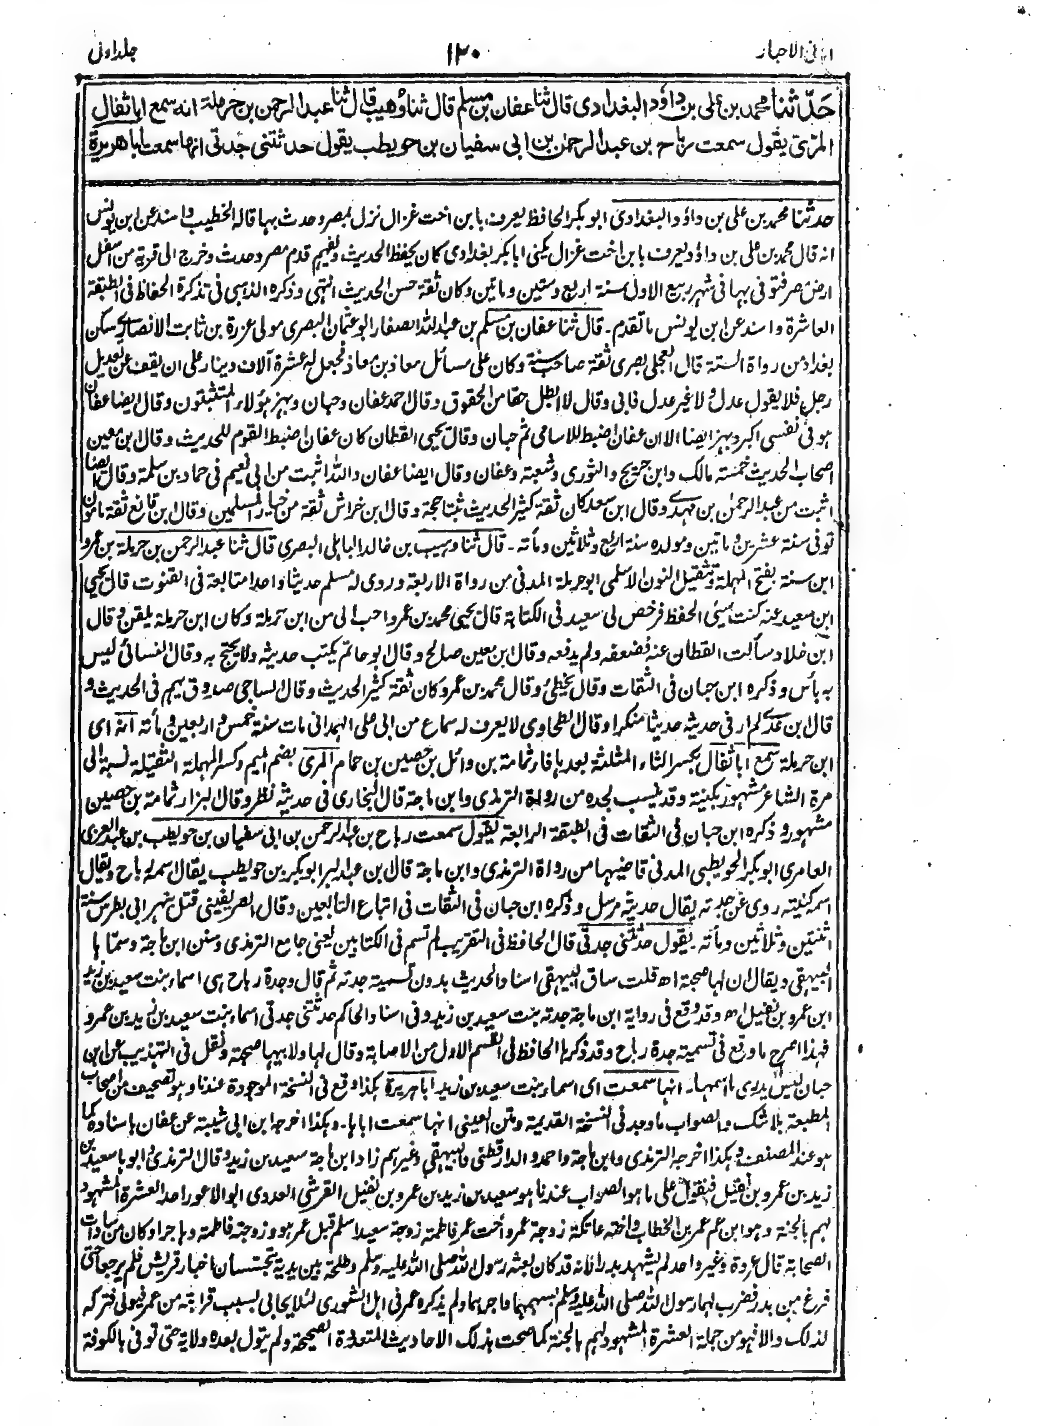 امانى الاحبار ١٢٠ جلد اول
حدثنا محمد بن على بن داود البغدادى قال ثنا عفان بن مسلم قال ثنا وهيب قال ثنا عبد الرحمن بن حرملة انه سمع ابا ثفال
المرى يقول سمعت رباح بن عبد الرحمن بن ابى سفيان بن حويطب يقول حدثتنى جدتى انها سمعت اباهريرة
حدثنا محمد بن على بن داؤد البغدادى ابو بكر الحافظ يعرف بابن اخت غزال نزل بمصر وحدث بها قاله الخطيب واسند عن ابن يونس
انه قال محمد بن على بن داؤد يعرف بابن اخت غزال يكنى ابا بكر بغدادى كان يحفظ الحديث ويفهم قدم مصر وحدث وخرج الى قرية من اسفل
ارض مصر فتوفى بها فى شهر ربيع الاول سنة اربع وستين ومائتين وكان ثقة حسن الحديث انتهى وذكره الذهبى فى تذكرة الحفاظ فى الطبقة
العاشرة واسند عن ابن يونس ماتقدم۔ قال ثنا عفان بن مسلم بن عبد الله الصفار ابو عثمان البصرى مولى عزرة بن ثابت الانصارى سكن
بغداد من رواة الستة قال العجلى بصرى ثقة صاحب سنة وكان على مسائل معاذ بن معاذ فجعل له عشرة آلاف دينار على ان يقف عن تعديل
رجل فلا يقول عدل ولا غير عدل فابى وقال لا ابطل حقا من الحقوق وقال احمد عفان وحبان وبهز هؤلاء المتثبتون وقال ايضا عفان
هو فى نفسى اكبر وبهز ايضا الا ان عفان اضبط للاسامى ثم حبان وقال يحيى القطان كان عفان اضبط القوم للحديث وقال ابن معين
اصحاب الحديث خمسة مالك وابن جريج والثورى وشعبة وعفان وقال ايضا عفان والله اثبت من ابى نعيم فى حماد بن سلمة وقال ايضا
اثبت من عبد الرحمن بن مهدى وقال ابن سعد كان ثقة كثير الحديث ثبتا حجة وقال ابن خراش ثقة من خيار المسلمين وقال ابن قانع ثقة مامون
توفى سنة عشرين ومائتين ومولده سنة اربع وثلاثين ومائة۔ قال ثنا وهيب بن خالد الباهلى البصرى قال ثنا عبد الرحمن بن حرملة بن عمرو
ابن سنة بفتح المهملة وتثقيل النون الاسلمى ابو حرملة المدنى من رواة الاربعة وروى له مسلم حديثا واحدا متابعة فى القنوت قال يحيى
ابن سعيد عنه كنت سيئ الحفظ فرخص لى سعيد فى الكتابة قال يحيى محمد بن عمرو احب الى من ابن حرملة وكان ابن حرملة يلقن وقال
ابن خلاد سألت القطان عنه فضعفه ولم يدفعه وقال ابن معين صالح وقال ابو حاتم يكتب حديثه ولا يحتج به وقال النسائى ليس
به بأس وذكره ابن حبان فى الثقات وقال يخطئ وقال محمد بن عمرو كان ثقة كثير الحديث وقال الساجى صدوق يهم فى الحديث و
قال ابن عدى لم ار فى حديثه حديثا منكرا وقال الطحاوى لا يعرف له سماع من ابى على الهمدانى مات سنة خمس واربعين ومائة انه اى
ابن حرملة سمع ابا ثفال بكسر الثاء المثلثة بعدها فاء ثمامة بن وائل بن حصين بن حمام المرى بضم الميم وكسر المهملة الثقيلة نسبة الى
مرة الشاعر مشهور بكنيته وقد ينسب لجده من رواة الترمذى وابن ماجة قال البخارى فى حديثه نظر وقال البزار ثمامة بن حصين
مشهور وذكره ابن حبان فى الثقات فى الطبقة الرابعة يقول سمعت رباح بن عبد الرحمن بن ابى سفيان بن حويطب بن عبد العزى
العامرى ابو بكر الحويطبى المدنى قاضيها من رواة الترمذى وابن ماجة قال ابن عبد البر ابو بكر بن حويطب يقال اسمه رباح ويقال
اسمه كنيته روى عن جدته يقال حديثه مرسل وذكره ابن حبان فى الثقات فى اتباع التابعين وقال الصريفينى قتل بنهر ابى بطرس سنة
اثنتين وثلاثين ومائة يقول حدثتنى جدتى قال الحافظ فى التقريب لم تسم فى الكتابين يعنى جامع الترمذى وسنن ابن ماجة وسماها
البيهقى ويقال ان لها صحبة اھ قلت ساق البيهقى اسناد الحديث بدون تسمية جدته ثم قال وجدة رباح هى اسماء بنت سعيد بن زيد
ابن عمرو بن نفيل اھ وقد وقع فى رواية ابن ماجة جدته بنت سعيد بن زيد وفى اسناد الحاكم حدثتنى جدتى اسماء بنت سعيد بن زيد بن عمرو
فهذا اصرح ما وقع فى تسمية جدة رباح وقد ذكرها الحافظ فى القسم الاول من الاصابة وقال لها ولابيها صحبة ونقل فى التهذيب عن ابن
حبان ليس يدرى ما اسمها۔ انها سمعت اى اسماء بنت سعيد بن زيد اباهريرة هكذا وقع فى النسخة الموجودة عندنا وهو تصحيف من اصحاب
المطبعة بلاشك والصواب ماوجد فى النسخة القديمة ومتن العينى انها سمعت اباها۔ وهكذا اخرجه ابن ابى شيبة عن عفان باسناده كما
هو عند المصنف وهكذا اخرجه الترمذى وابن ماجة واحمد والدارقطنى والبيهقى وغيرهم زاد ابن ماجة سعيد بن زيد وقال الترمذى وابوها سعيد بن
زيد بن عمرو بن نفيل فنقول على ما هو الصواب عندنا هو سعيد بن زيد بن عمرو بن نفيل القرشى العدوى ابو الاعور احد العشرة المشهود
لهم بالجنة وهو ابن عم عمر بن الخطاب واخته عاتكة زوجة عمر واخت عمر فاطمة زوجة سعيد اسلم قبل عمر هو وزوجته فاطمة وهاجرا وكان من سادات
الصحابة قال عروة وغير واحد لم يشهد بدرا فانه قد كان بعثه رسول الله صلى الله عليه وسلم وطلحة بين يديه يتجسسان اخبار قريش فلم يرجعا حتى
فرغ من بدر فضرب لهما رسول الله صلى الله عليه وسلم بسهمهما واجرهما ولم يذكره عمر فى اهل الشورى لئلا يحابى بسبب قرابته من عمر فيولى فتركه
لذلك والا فهو من جملة العشرة المشهود لهم بالجنة كما صحت بذلك الاحاديث المتعددة الصحيحة ولم يتول بعده ولاية حتى توفى بالكوفة